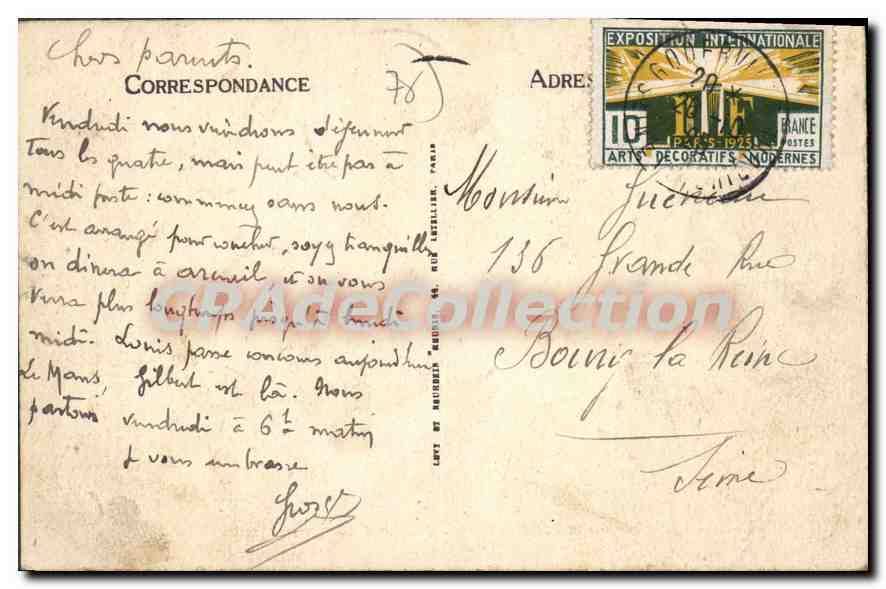 Chers parents.
CORRESPONDANCE
Vendredi nous viendrons déjeuner
tous les quatre, mais peut être pas à
midi juste : commencez sans nous.
C'est arrangé pour coucher, soyez tranquilles
on dinera à arcueil et on vous
verra plus longtemps jusqu'à lundi
midi. Louis passe concours aujourd'hui
Le Mans, Gilbert est là. Nous
partons vendredi à 6h matin
& vous embrasse
78
LEVY ET NEURDEIN REUNIS, 44, RUE LETELLIER, PARIS
ADRES
EXPOSITION INTERNATIONALE
10
PARIS-1925
FRANCE
POSTES
ARTS DECORATIFS MODERNES
20
Monsieur Gueneau
136 Grande Rue
Bourg la Reine
Seine
CPAdeCollection.com